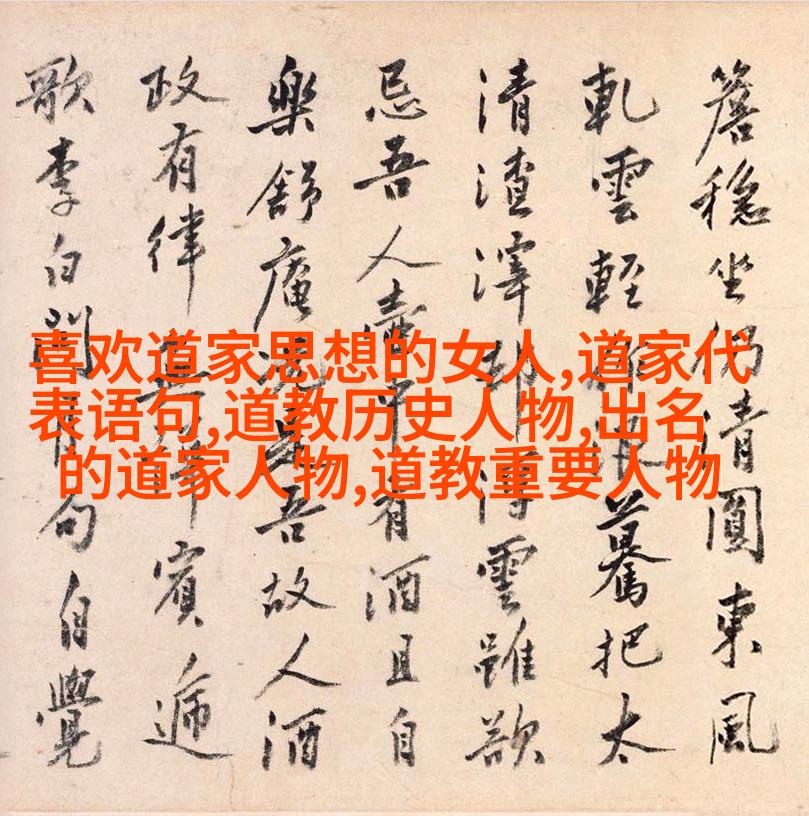 喜欢道家思想的女人,道家代
表语句,道教历史人物,出名
的道家人物,道教重要人物
簷稳坐仍清圓東風
軋雲輕驀把太
清渣滓雲雖欲
忌吾人壺中有酒且自
樂舒庵吾故人酒
政有律賓遞
歌李白問句自覺